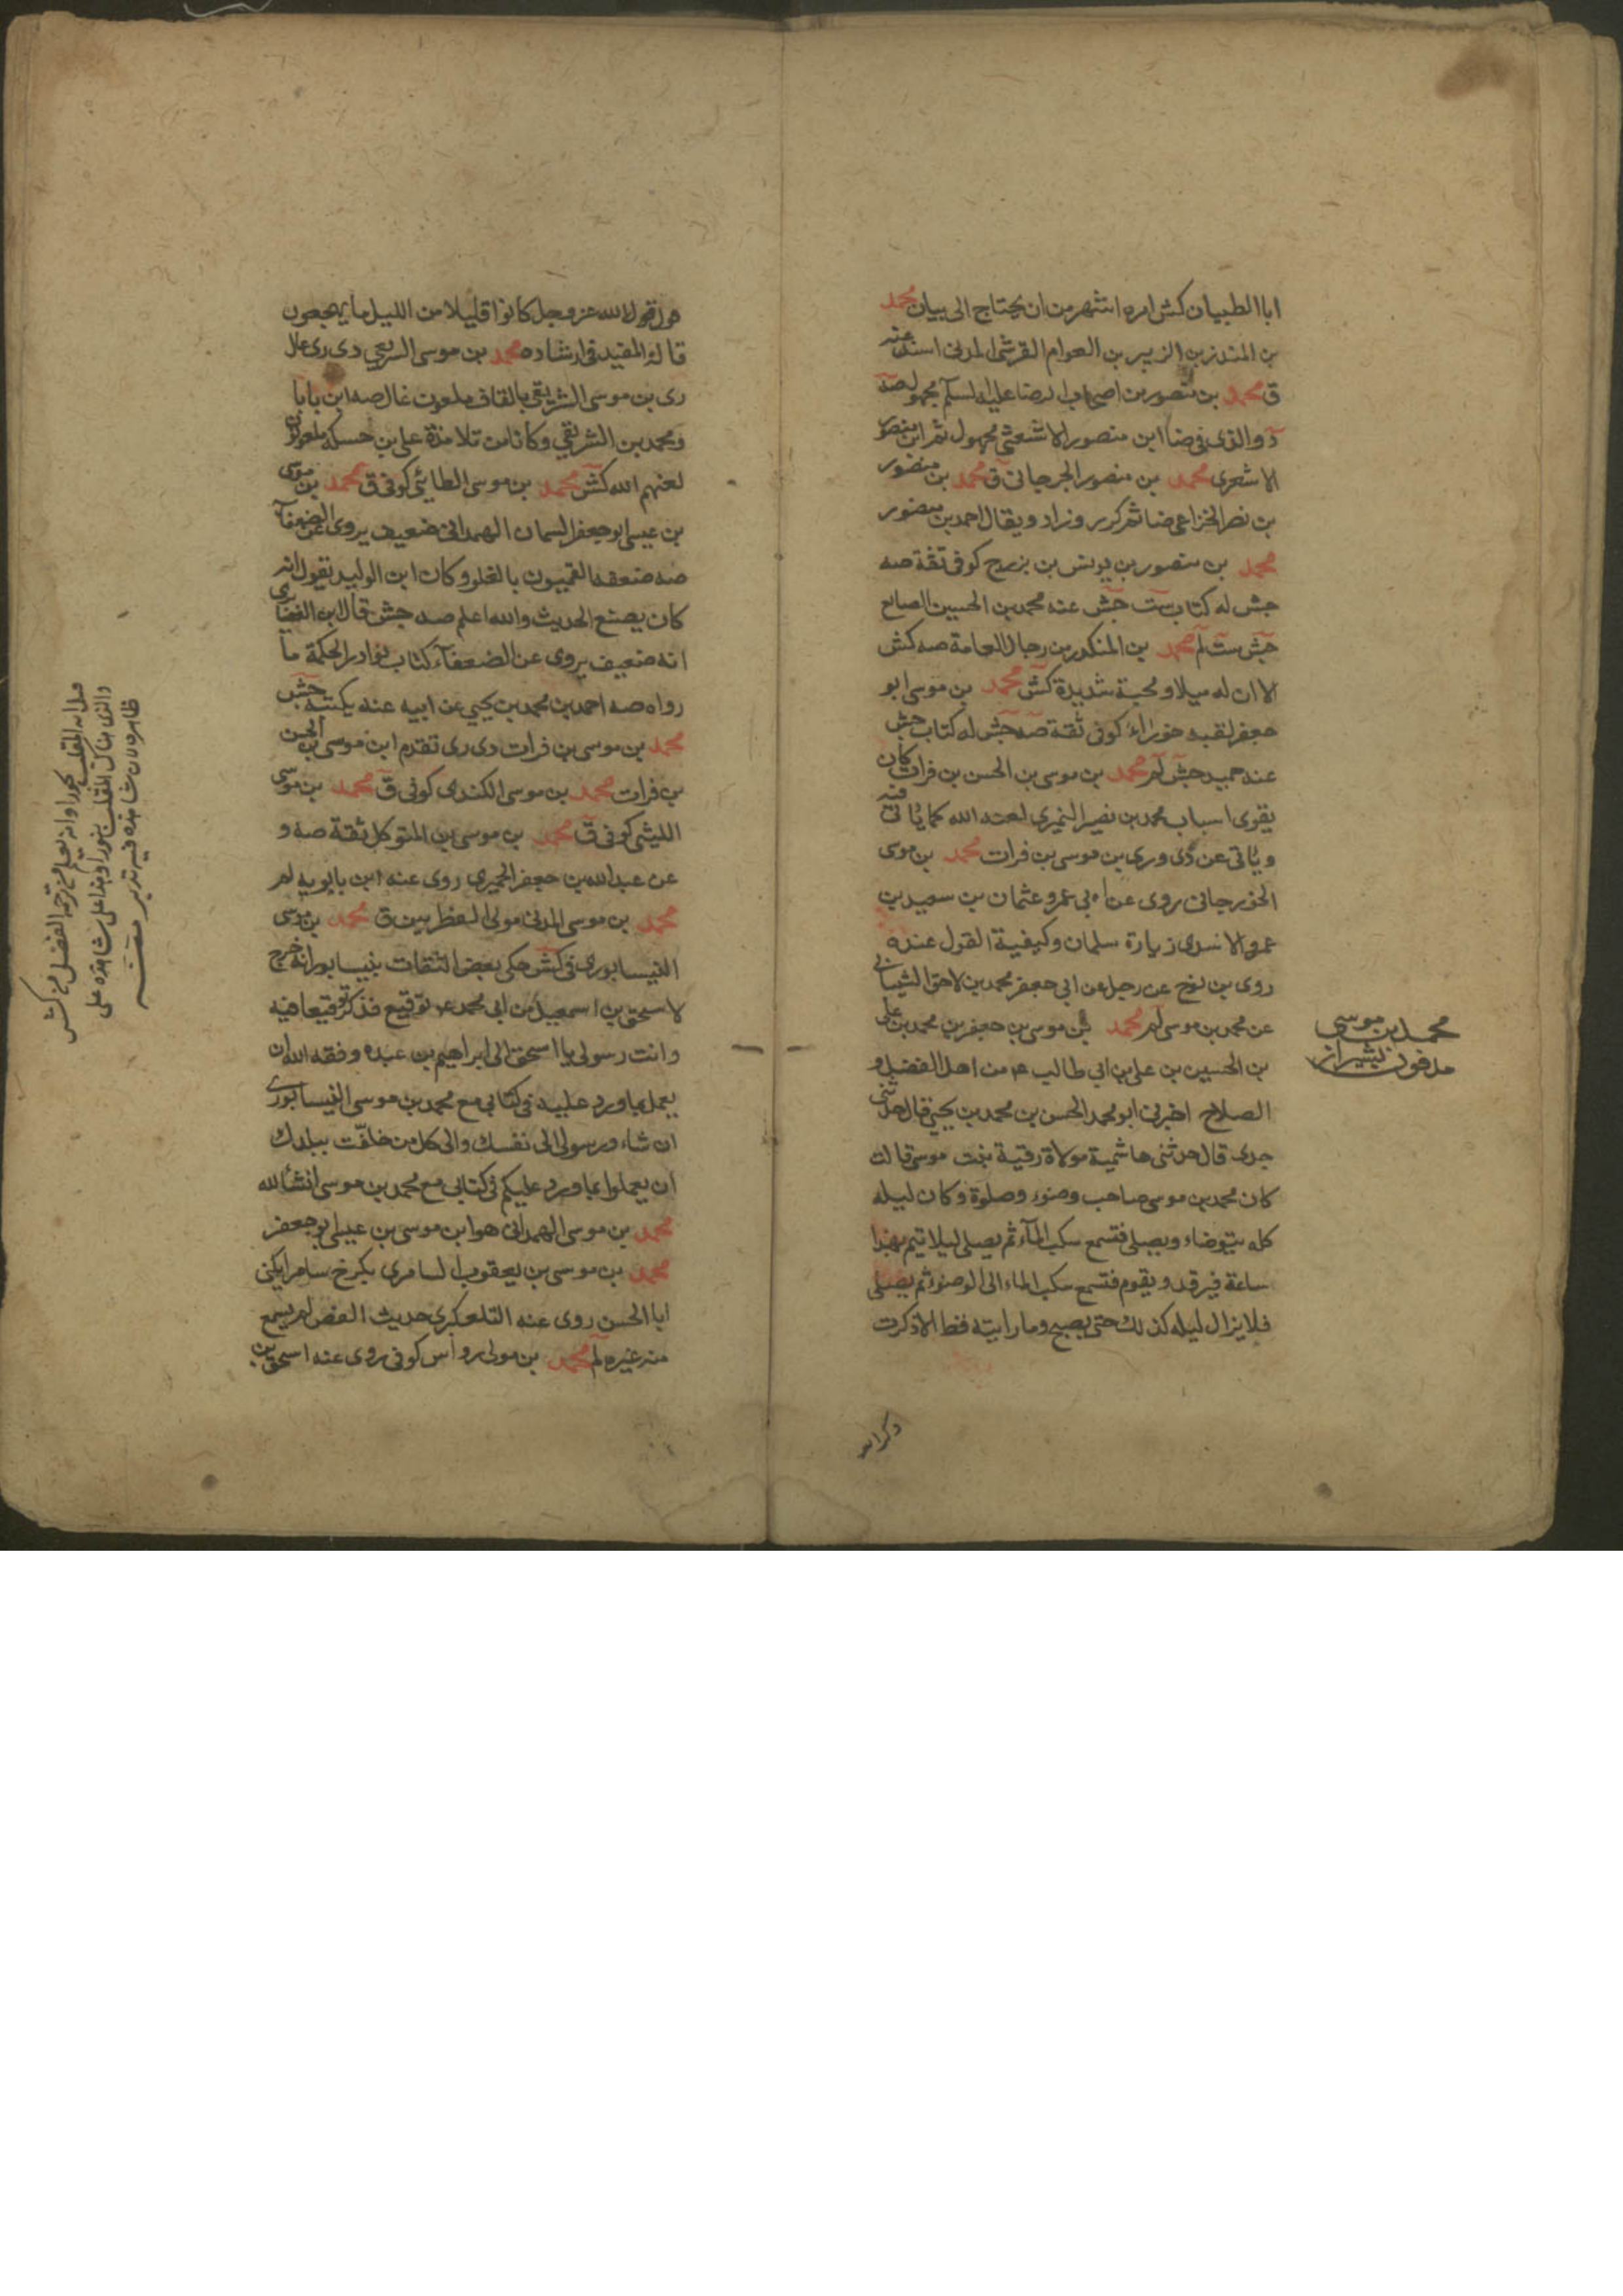 ابا الطبيان كش امره اشهر من ان يحتاج الى بيان محمد
بن المنذر بن الزبير بن العوام القرشى المدنى اسند عنه
ق محمد بن منصور من اصحاب الرضا عليه السلم مجهول صه
د والذى فى ضا ابن منصور الاشعثى مجهول ثم ابن منصور
الاشعرى محمد بن منصور الجرجانى ق محمد بن منصور
بن نصر الخزاعى ضا ثم كرر وزاد ويقال احمد بن منصور
محمد بن منصور بن يونس بن بزرج كوفى ثقة صه
جش له كتاب ست جش عنه محمد بن الحسين الصايع
جش ست لم محمد بن المنكدر من رجال العامة صه كش
الا ان له ميلا ومحبة شديدة كش محمد بن موسى ابو
جعفر لقبه خوراء كوفى ثقة صه جش له كتاب جش
عنه حميد جش لم محمد بن موسى بن الحسن بن فرات كان
يقوى اسباب محمد بن نصير النميرى لعنه الله كما ياتى فيه
وياتى عن دى ورى بن موسى بن فرات محمد بن موسى
الخورجانى روى عن ابى عمرو عثمان بن سعيد بن
عمرو الاسدى زيارة سلمان وكيفية القول عنده
روى بن نوح عن رجل عن ابى جعفر محمد بن لاحق الشيبانى
عن محمد بن موسى لم محمد بن موسى بن جعفر بن محمد بن على
بن الحسين بن على بن ابى طالب ع من اهل الفضل و
الصلاح اخبرنى ابو محمد الحسن بن محمد بن يحيى قال حدثنى
جدى قال حدثنى هاشمية مولاة رقية بنت موسى قالت
كان محمد بن موسى صاحب وضوء وصلوة وكان ليله
كله يتوضاء ويصلى فتسمع سكب المآء ثم يصلى ليلا ثم يهدا
ساعة فيرقد ويقوم فتسمع سكب الماء الى الوضوء ثم يصلى
فلا يزال ليله كذلك حتى يصبح وما رايته فط الا ذكرت
محمد بن موسى
مدفون بشيراز
قول الله عز وجل كانوا قليلا من الليل ما يهجعون
قاله المفيد فى ارشاده محمد بن موسى السريعى دى رى غال
رى بن موسى الشريقى بالقاف ملعون غال صه ابن بابا
ومحمد بن الشريقى وكانا من تلامذة على بن حسكه ملعونان
لعنهم الله كش محمد بن موسى الطائى كوفى ق محمد بن موسى
بن عيسى ابو جعفر السمان الهمدانى ضعيف يروى عن الضعفآء
صه ضعفه القميون بالغلو وكان ابن الوليد يقول انه
كان يصنع الحديث والله اعلم صه جش قال ابن الغضايرى
انه ضعيف يروى عن الضعفآء كتاب نوادر الحكمة ما
رواه صه احمد بن محمد بن يحيى عن ابيه عنه بكتبه جش
محمد بن موسى بن فرات دى رى تقدم ابن موسى بن الحسن
بن فرات محمد بن موسى الكندى كوفى ق محمد بن موسى
الليثى كوفى ق محمد بن موسى بن المتوكل ثقة صه و
عن عبد الله بن جعفر الحميرى روى عنه ابن بابويه لم
محمد بن موسى المدنى مولى الفطريين ق محمد بن موسى
النيسابورى فى كش حكى بعض الثقات بنيسابور انه خرج
لاسحق بن اسمعيل من ابى محمد ع توقيع فذكر توقيعا فيه
وانت رسولى يا اسحق الى ابراهيم بن عبده وفقه الله ان
يعمل بما ورد عليه فى كتابى مع محمد بن موسى النيسابورى
ان شاء ورسولى الى نفسك والى كل من خلفت ببلدك
ان يعملوا بما ورد عليكم فى كتابى مع محمد بن موسى انشآء الله
محمد بن موسى الهمدانى هو ابن موسى بن عيسى ابو جعفر
محمد بن موسى بن يعقوب السامرى بكرخ سامرا يكنى
ابا الحسن روى عنه التلعكبرى حديث القمن لم يسمع
منه غيره لم محمد بن مولى رواس كوفى روى عنه اسحق بن